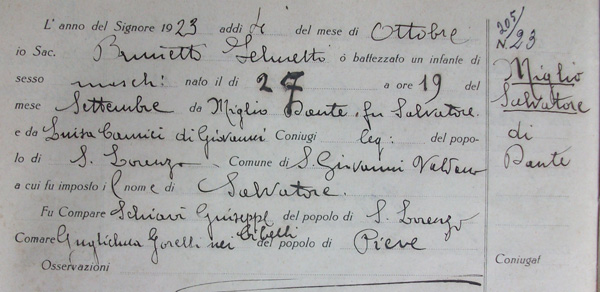 L'anno del Signore 1923 addì 4 del mese di Ottobre
io Sac. Brunetto ò battezzato un infante di
sesso masch: nato il dì 27 a ore 19 del
mese Settembre da Miglio Dante fu Salvatore
e da Luisa di Giovanni Coniugi leg: del popo-
lo di S. Lorenzo Comune di S. Giovanni Valdarno
a cui fu imposto i l nome di Salvatore.
Fu Compare Schiavi Guiseppe del popolo di S. Lorenzo
Comare Guglielma Gorelli nei del popolo di Pieve
Osservazioni
205/
N. 23
Miglio
Salvatore
di
Dante
Coniugat